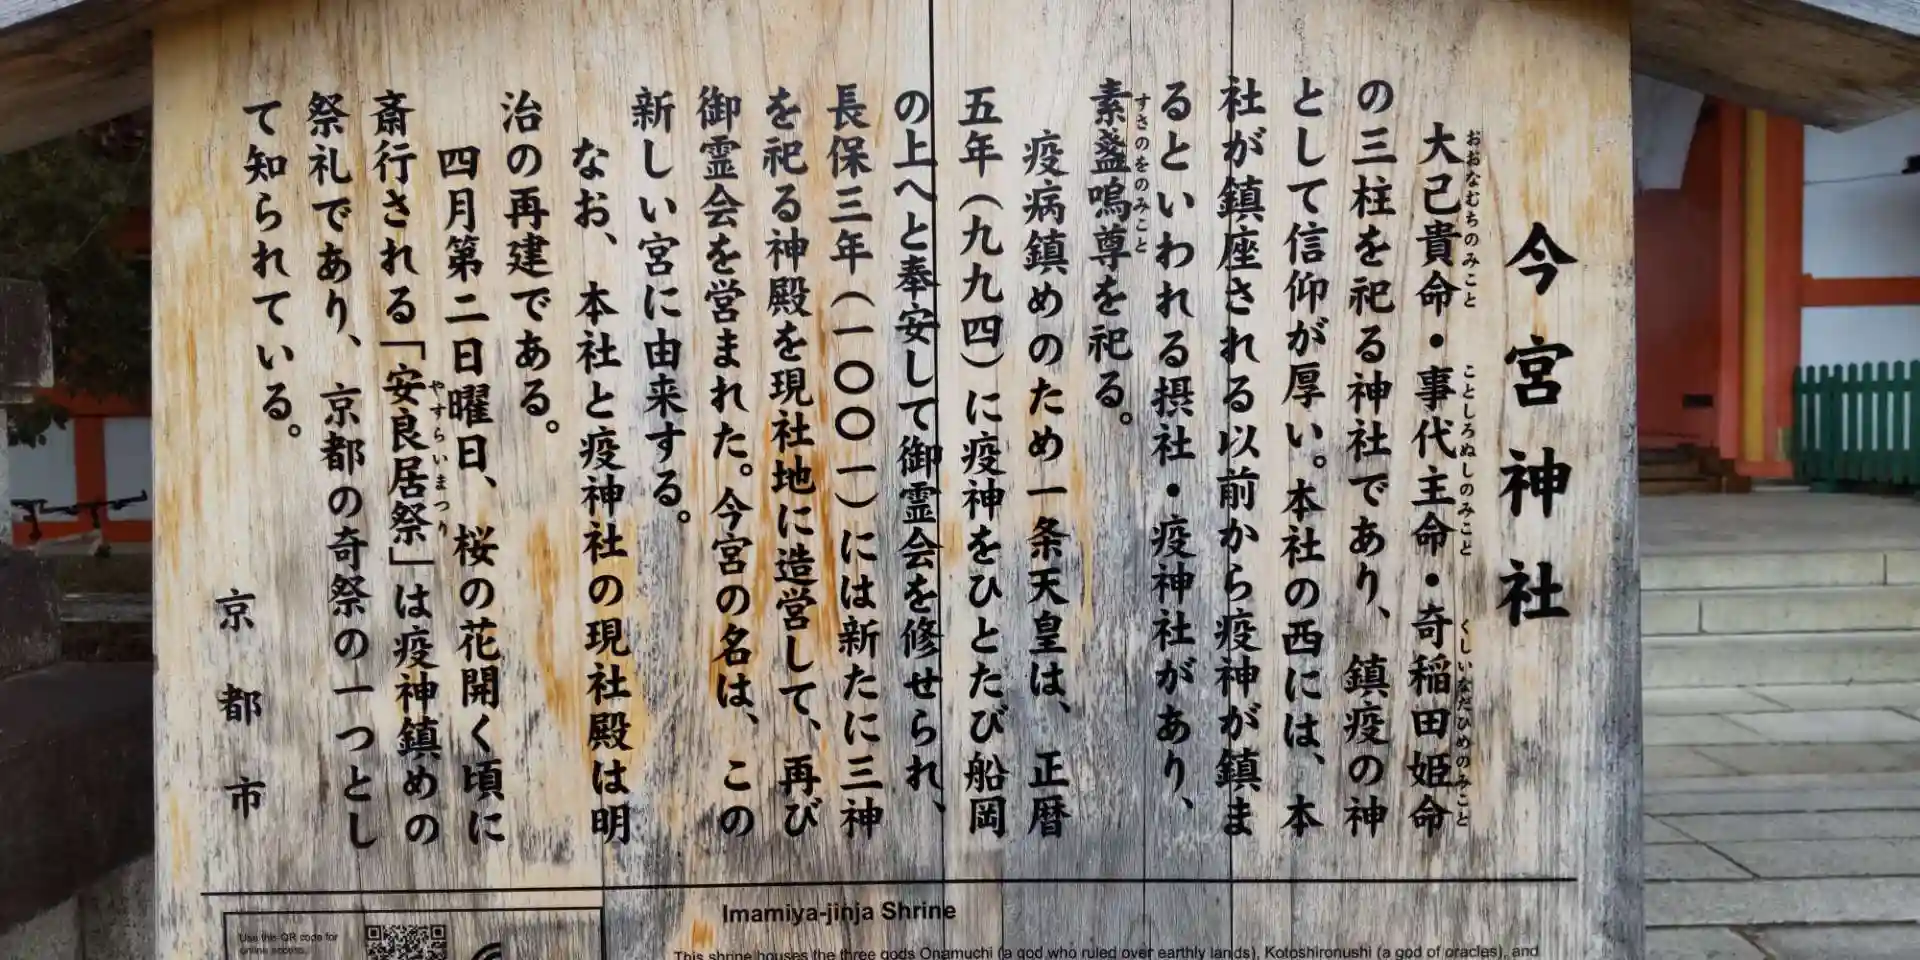 今宮神社
大己貴命・事代主命・奇稲田姫命
おおなむちのみこと ことしろぬしのみこと くしいなだひめのみこと
の三柱を祀る神社であり、鎮疫の神
として信仰が厚い。本社の西には、本
社が鎮座される以前から疫神が鎮ま
るといわれる摂社・疫神社があり、
素盞嗚尊を祀る。
すさのをのみこと
疫病鎮めのため一条天皇は、正暦
五年(九九四)に疫神をひとたび船岡
の上へと奉安して御霊会を修せられ、
長保三年(一〇〇一)には新たに三神
を祀る神殿を現社地に造営して、再び
御霊会を営まれた。今宮の名は、この
新しい宮に由来する。
なお、本社と疫神社の現社殿は明
治の再建である。
四月第二日曜日、桜の花開く頃に
斎行される「安良居祭」は疫神鎮めの
やすらいまつり
祭礼であり、京都の奇祭の一つとし
て知られている。
京都市
Imamiya-jinja Shrine
This shrine houses the three gods Onamuchi (a god who ruled over earthly lands), Kotoshironushi (a god of oracles), and
Use this QR code for
online access.